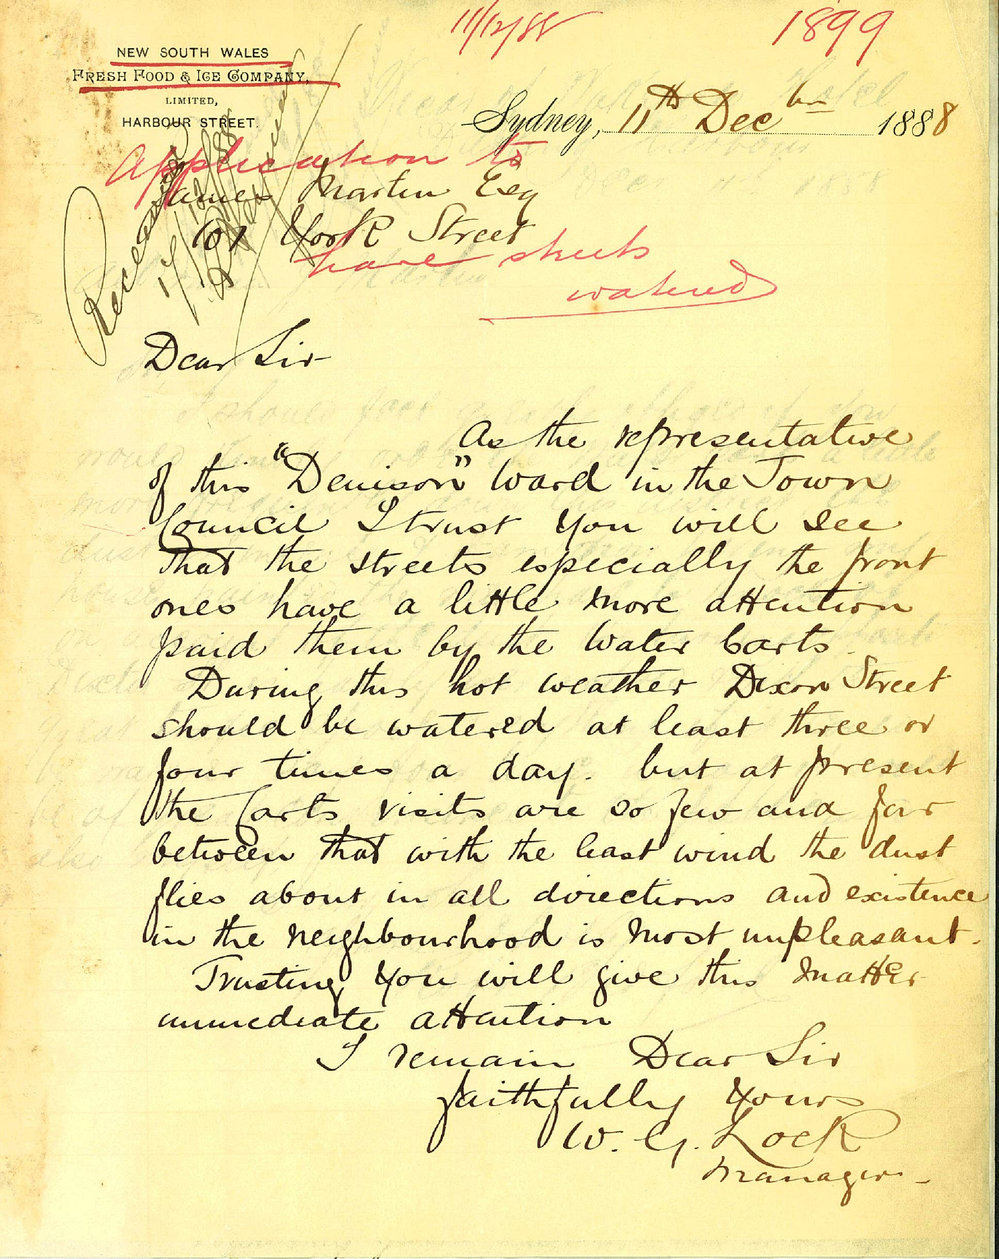 11/12/88
1899
NEW SOUTH WALES
FRESH FOOD & ICE COMPANY,
LIMITED,
HARBOUR STREET.
Sydney, 11th Decbr 1888
Application to
have streets
watered
James Martin Esq
107 York Street
Dear Sir
As the representative
of this "Denison" Ward in the Town
Council I trust you will see
that the streets especially the front
ones have a little more attention
paid them by the Water Carts.
During this hot weather Dixon Street
should be watered at least three or
four times a day. but at present
the Carts visits are so few and far
between that with the least wind the dust
flies about in all directions and existence
in the neighbourhood is most unpleasant.
Trusting you will give this matter
immediate attention
I remain Dear Sir
faithfully Yours
W. G. Lock
Manager